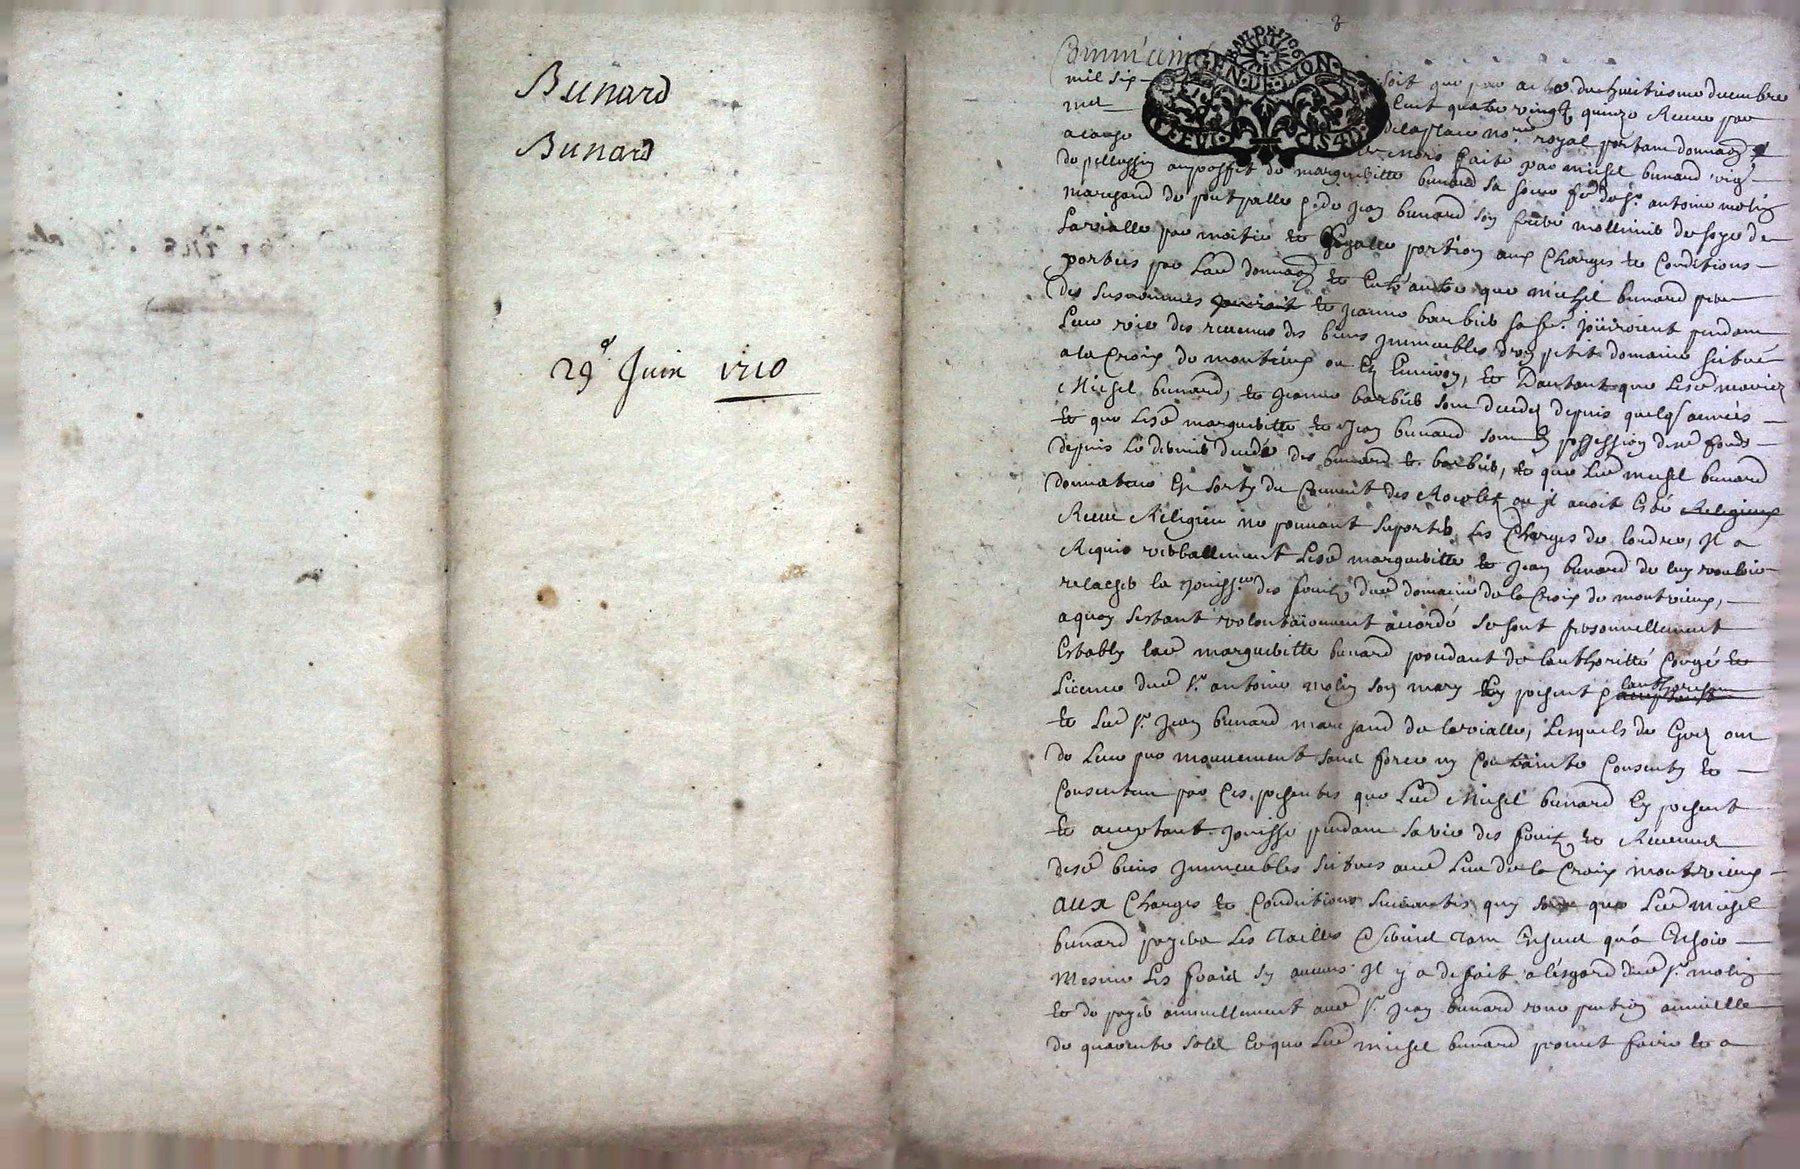 Bunard
Bunard
29e Juin 1710
BAIL DE 1706
GEN DE LION
mil six
soit que par acte du huitiesme decembre
cent quatre vingt quinze Receu par
a cause
delaplace nore royal portant donnaon
de pellussin au proffit de margueritte bunard sa soeur fe de sr antoine molin
marchand de
jean bunard son frere
Larialle par moitie et Egalle portion aux Charges et Conditions
portees par Lad donnaon et Entre autre que michel bunard pere
des susnommes et jeanne barbier sa fe jouiroient pendant
Leur vie des revenus des biens jmmeubles d'un petit domaine situé
a la Croix de montvieux ou Es Environs, et D'autant que Lesd mariez
Michel bunard, et jeanne barbier sont decedez depuis quelqs années
et que Lesd margueritte et Jean bunard sont En possession desd fonds
depuis Le dernier decedé des bunard et barbier, et que Led michel bunard
donnateur Est sorty du Couvent des où il avoit Esté Religieux
Receu Religieux ne pouvant suporter Les Charges de Lordre, Il a
Requis verballement Lesd margueritte et Jean bunard de luy vouloir
relacher la jouissce des fruits dud domaine de la Croix de montvieux,
a quoy s'estant volontairement accordé se sont personnellement
Establys lad margueritte bunard procedant de l'authoritté Congé et
Licence dud sr antoine molin son mary Ey present
et Led sr Jean bunard marchand de larialle, Lesquels de Gré ont
de Leur pur mouvement sans force ny Contrainte Consenty et
Consentent par Ces presentes que Led Michel bunard Ey present
et acceptant jouisse pendant sa vie des fruits et Revenus
desd biens jmmeubles situes aud Lieu de la Croix montvieux
aux Charges et Conditions suivantes que Led michel
bunard payera Les Tailles
mesme Les frais sy aucuns Il y a de fait a l'esgard dud sr molin
et de payer annuellement aud sr Jean bunard une pention annuelle
de quarente sols Ce que Led michel bunard promet faire et a